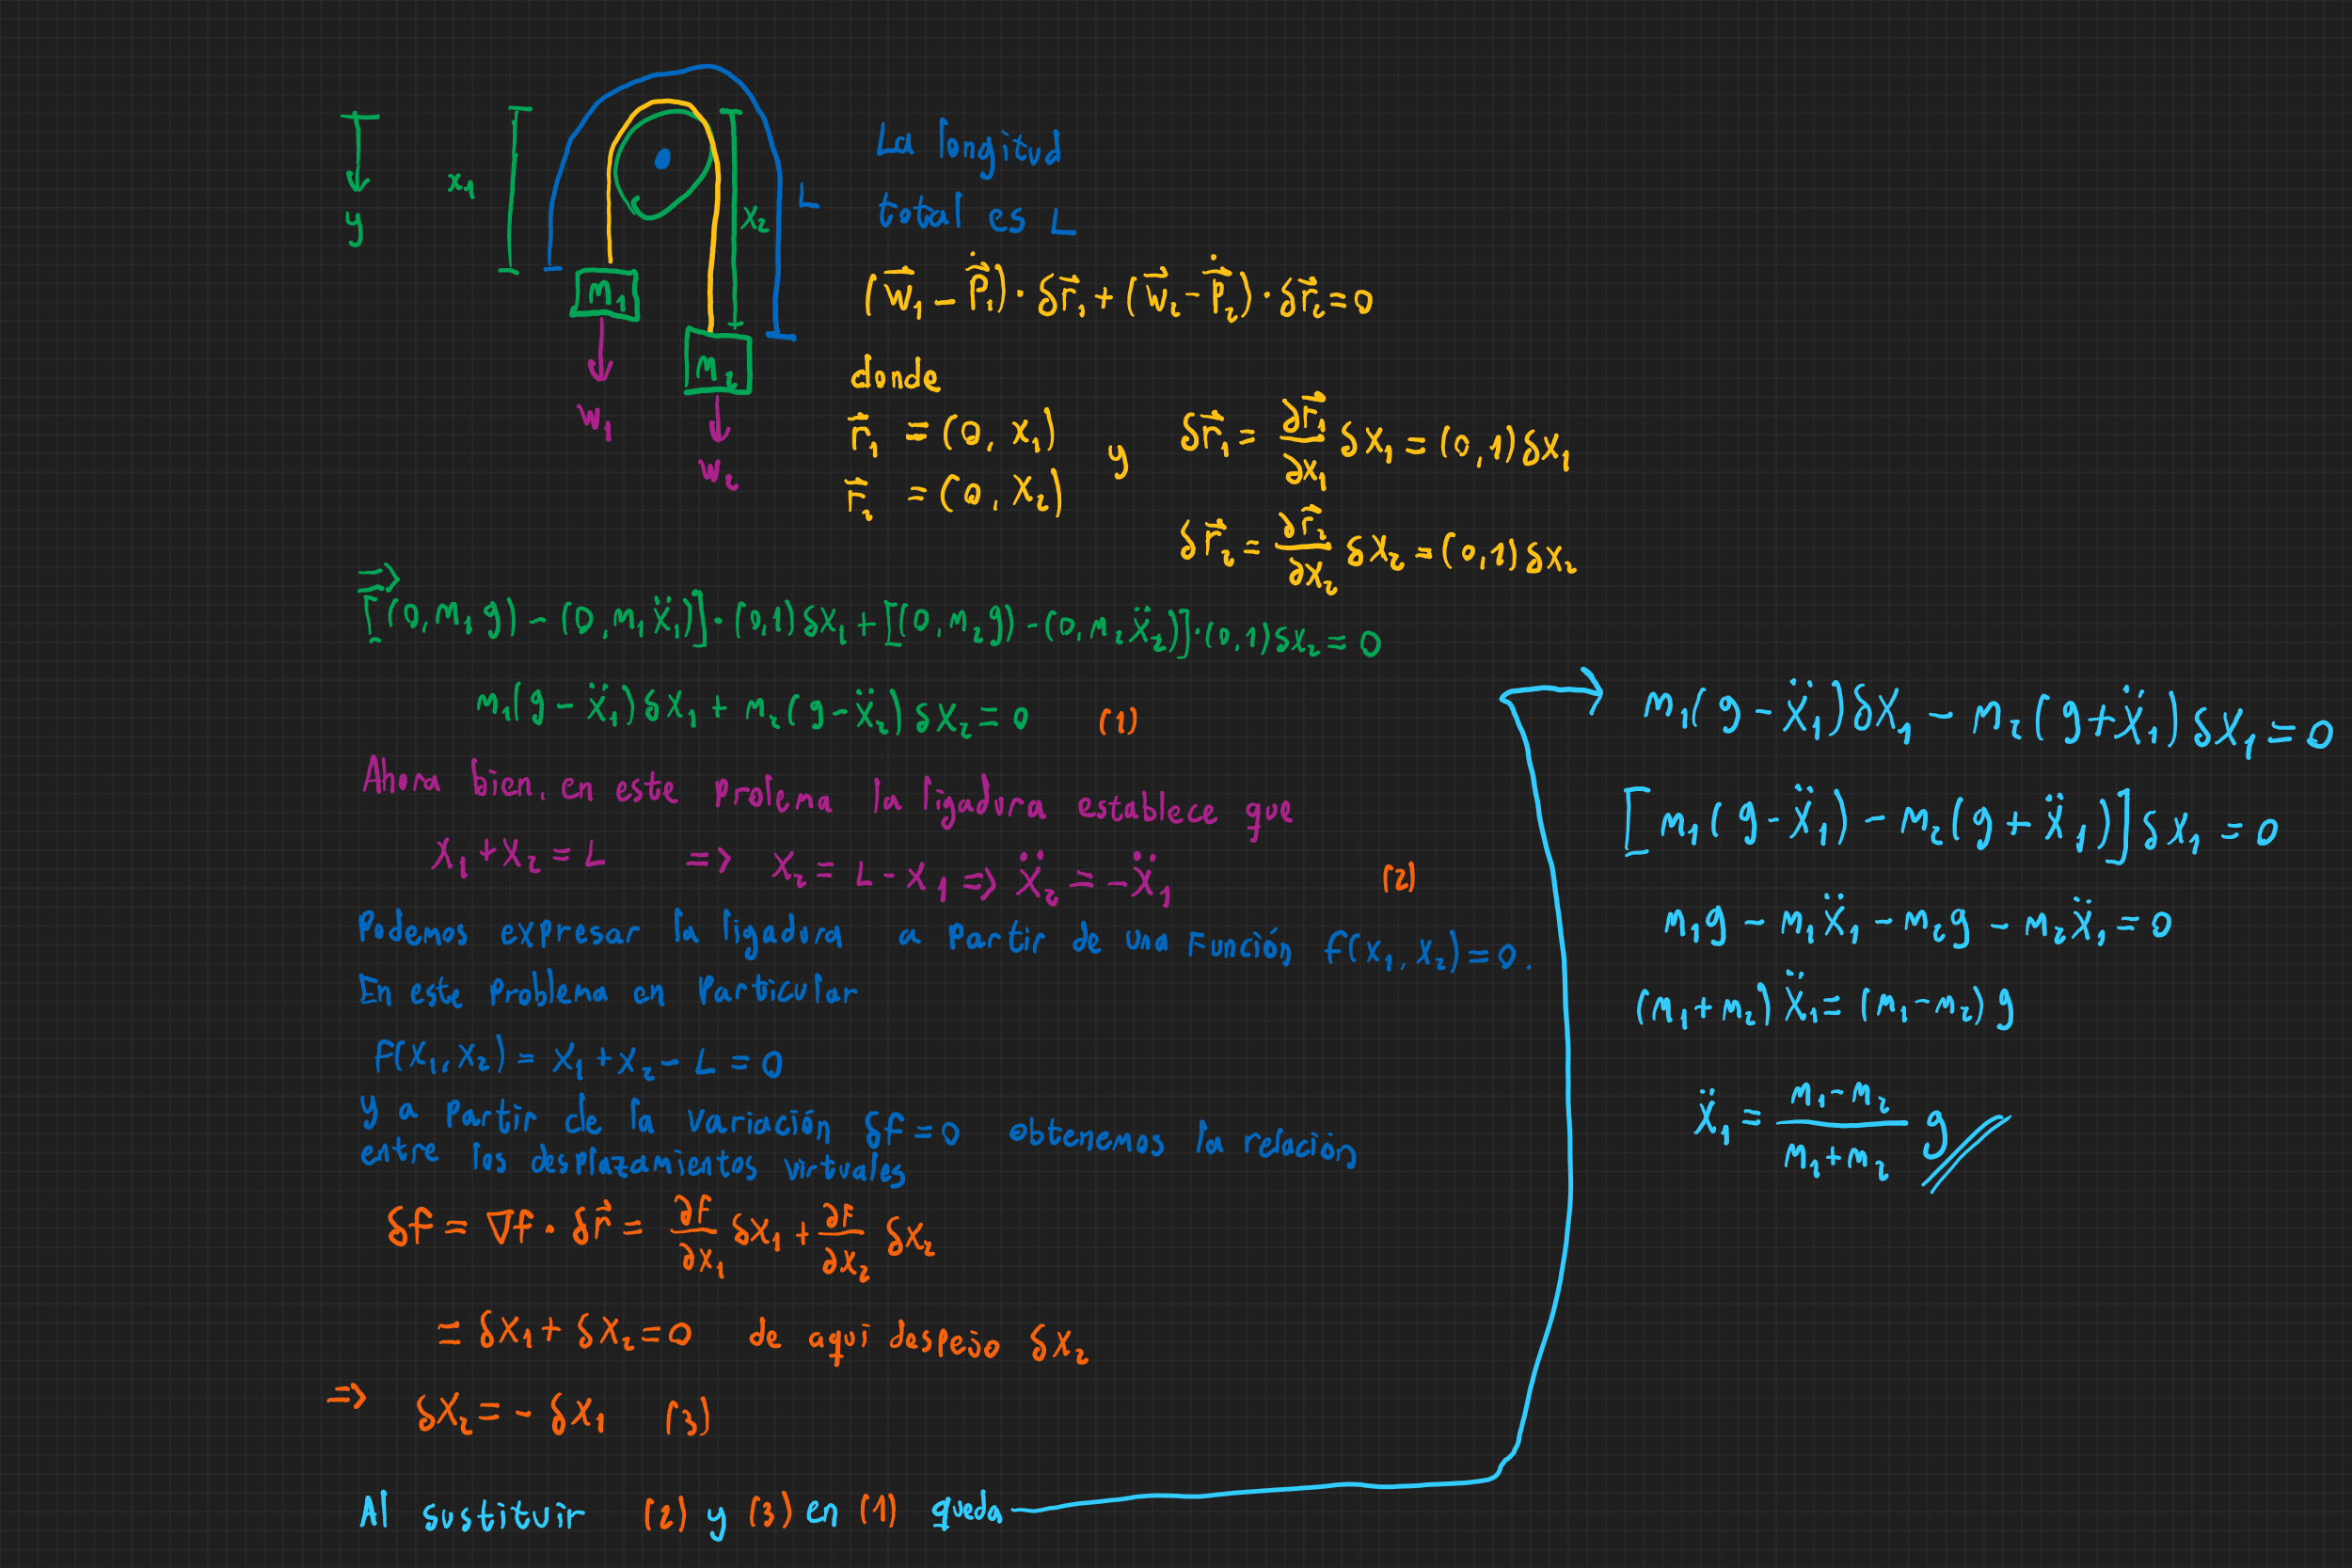 y
x₁
x₂
L
m₁
m₂
w₁
w₂
La longitud
total es L
(w⃗₁ - ṗ⃗₁) · δr⃗₁ + (w⃗₂ - ṗ⃗₂) · δr⃗₂ = 0
donde
r⃗₁ = (0, x₁)
r⃗₂ = (0, x₂)
y
δr⃗₁ = ∂r⃗₁/∂x₁ δx₁ = (0,1) δx₁
δr⃗₂ = ∂r⃗₂/∂x₂ δx₂ = (0,1) δx₂
⇒
[(0, m₁g) - (0, m₁ẍ₁)] · (0,1) δx₁ + [(0, m₂g) - (0, m₂ẍ₂)] · (0,1) δx₂ = 0
m₁(g - ẍ₁) δx₁ + m₂(g - ẍ₂) δx₂ = 0 (1)
Ahora bien, en este prolema la ligadura establece que
x₁ + x₂ = L ⇒ x₂ = L - x₁ ⇒ ẍ₂ = -ẍ₁ (2)
Podemos expresar la ligadura a partir de una Función f(x₁, x₂) = 0.
En este problema en particular
F(x₁, x₂) = x₁ + x₂ - L = 0
y a partir de la variación δf = 0 obtenemos la relación
entre los desplazamientos virtuales
δf = ∇f · δr⃗ = ∂F/∂x₁ δx₁ + ∂F/∂x₂ δx₂
= δx₁ + δx₂ = 0 de aquí despejo δx₂
⇒ δx₂ = - δx₁ (3)
Al sustituir (2) y (3) en (1) queda
m₁(g - ẍ₁) δx₁ - m₂(g + ẍ₁) δx₁ = 0
[m₁(g - ẍ₁) - m₂(g + ẍ₁)] δx₁ = 0
m₁g - m₁ẍ₁ - m₂g - m₂ẍ₁ = 0
(m₁ + m₂) ẍ₁ = (m₁ - m₂) g
ẍ₁ = (m₁ - m₂)/(m₁ + m₂) g